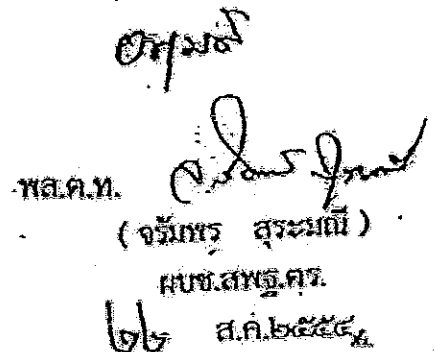 อนุมัติ
พล.ต.ท.
( จรัมพร สุระมณี )
ผบช.สพฐ.ตร.
๒๒ ส.ค.๒๕๕๔